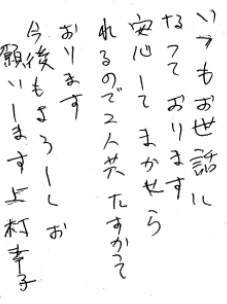 いつもお世話に
なっております
安心してまかせら
れるので2人共たすかって
おります
今後もよろしくお
願いします上村幸子